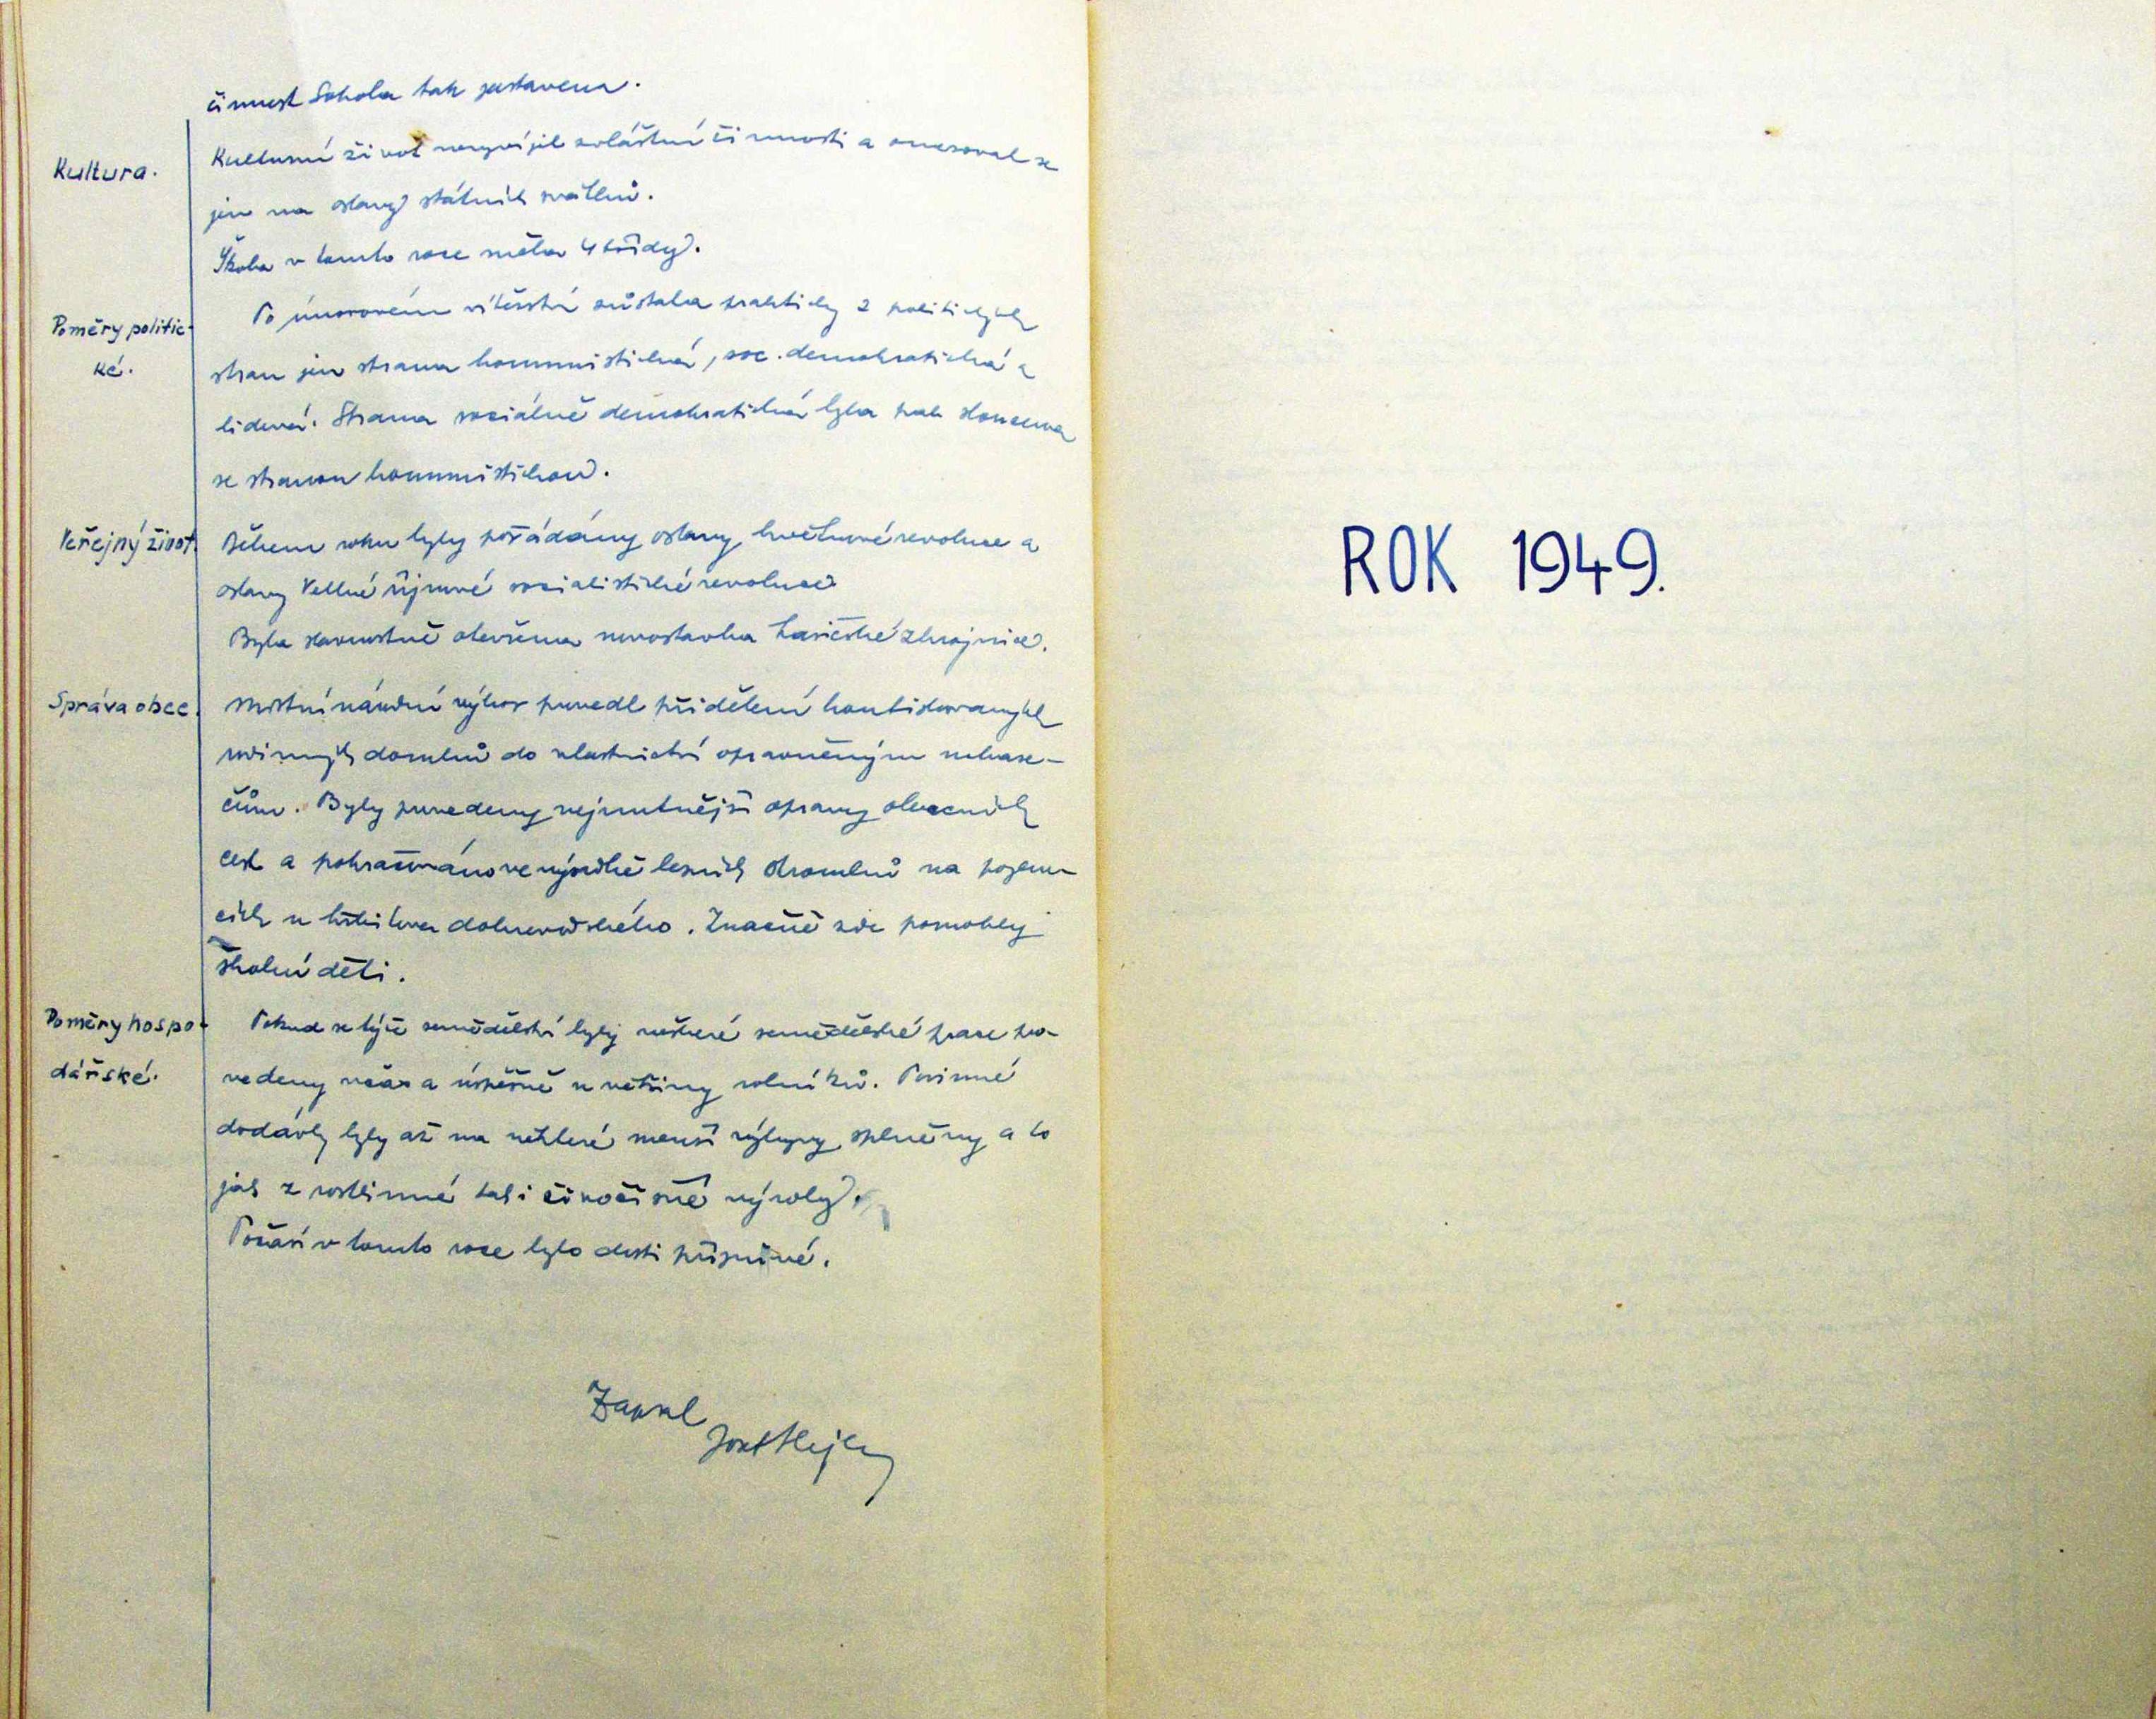 činnost Sokola tak zastavena.
Kultura.
Kulturní život nevyvíjel zvláštní činnosti a omezoval se
jen na oslavy státních svátků.
Škola v tomto roce měla 4 třídy.
Poměry politic-
ké.
Po únorovém vítězství zůstala prakticky z politických
stran jen strana komunistická, soc. demokratická a
lidová. Strana sociálně demokratická byla pak sloučena
se stranou komunistickou.
Veřejný život.
Během roku byly pořádány oslavy květnové revoluce a
oslavy Velké říjnové socialistické revoluce
Byla slavnostně otevřena novostavba hasičské zbrojnice.
Správa obce.
Místní národní výbor provedl přidělení konfiskovaných
rodinných domků do vlastnictví oprávněným uchaze-
čům. Byly provedeny nejnutnější opravy obecních
cest a pokračováno ve výsadbě lesních stromků na pozem-
cích u hřbitova . Značně zde pomohly
školní děti.
Poměry hospo-
dářské.
Pokud se týče zemědělství byly veškeré zemědělské práce pro-
vedeny včas a úspěšně u většiny rolníků. Povinné
dodávky byly až na některé menší výkyvy splněny a to
jak z rostlinné tak i živočišné výroby.
Počasí v tomto roce bylo dosti příznivé.
ROK 1949.